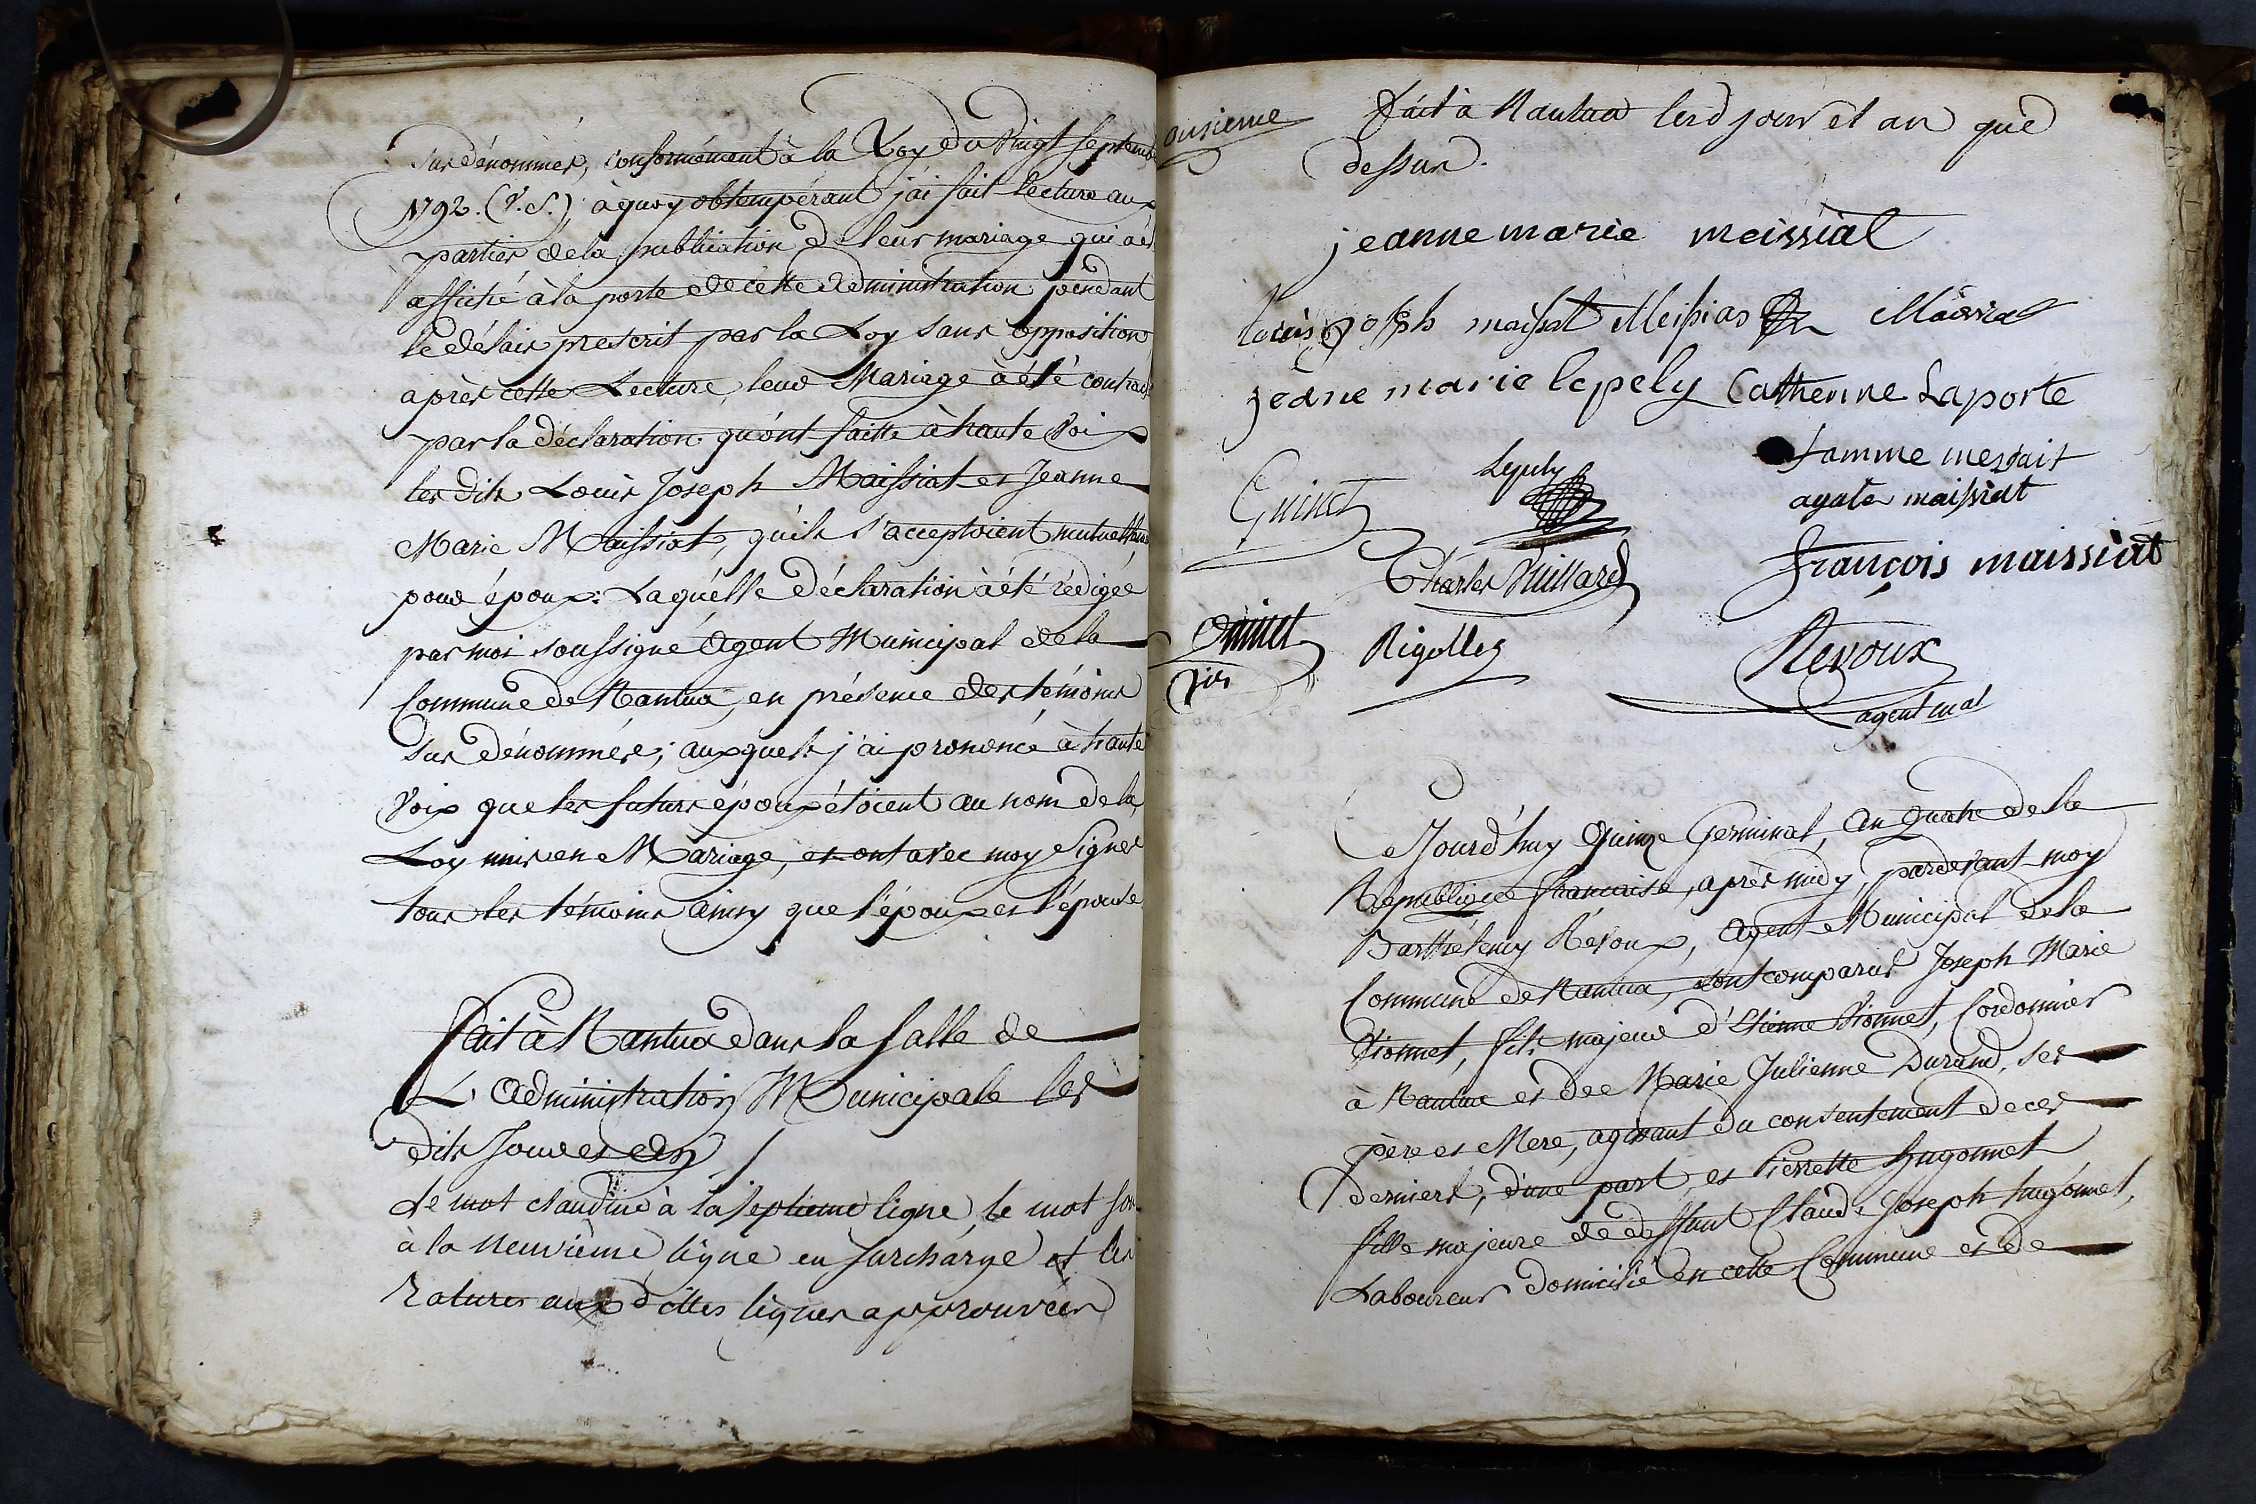 Sus dénommés, conformément à la Loy du Vingt Septembre
1792. (V. S.); à quoy obtempérant j'ai fait Lecture aux
parties de la publication de leur mariage qui a été
affiché à la porte de cette administration pendant
le délais prescrit par la Loy sans opposition
après cette Lecture, leur Mariage à été contracté
par la déclaration qu'ont faitte à haute Voix
les dits Louis Joseph Maissiat et Jeanne
Marie Maissiat, qu'ils s'acceptoient mutuellement
pour époux: Laquelle déclaration à été rédigée
par moi soussigné Agent Municipal de la
Commune de Nantua, en présence des témoins
sus dénommés; auxquels j'ai prononcé à haute
Voix que les futurs époux étoient au nom de la
Loy unis en Mariage, et ont avec moy Signés
tous les témoins ainsy que l'époux et l'épouse
Fait à Nantua dans la salle de
L'administration Municipale les
dits Jour et an /
Le mot claudine à la septieme ligne, le mot son
à la neuvième ligne en surcharge et les
ratures aux dittes lignes approuvées
onsieme
Fait à Nantua lesd jour et an que
dessus.
jeanne marie meissial
louis joseph maissat Meissias
jeane marie lepely Catherine Laporte
famme messait
Guinet Lepely
agate maissiat
Charles Vuillard
françois maissiat
Guinet Rigollez Revoux
agent mal
Cejourd'huy Quinze Germinal, an Quatre de la
République francaise, après midy, pardevant moy
Barthélemy Révoux, Agent Municipal de la
Commune de Nantua, sont comparus Joseph Marie
Vionnet, fils majeur d'Etienne Vionnet, Cordonnier
à Nantua et de Marie Julienne Durand, ses
père et Mere, agissant du consentement de ces
derniers, d'une part, et Pierrette hugonnet
fille majeure de deffunt Claude Joseph hugonnet,
Laboureur domicilié en cette Commune et de